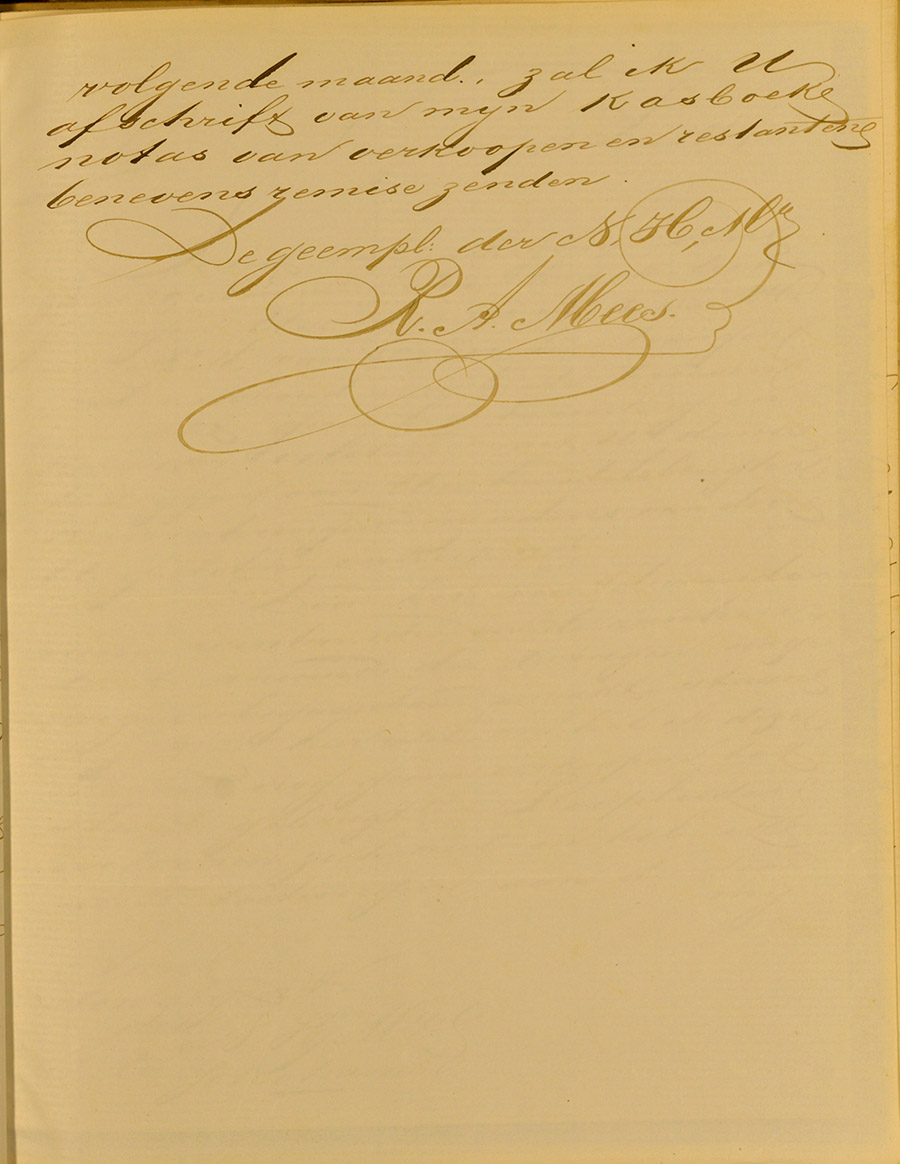 volgende maand., zal ik U
afschrift van mijn kasboek
notas van verkoopen en restanten
benevens remise zenden.
De geempl: der N. H, Mij
R. A. Mees.